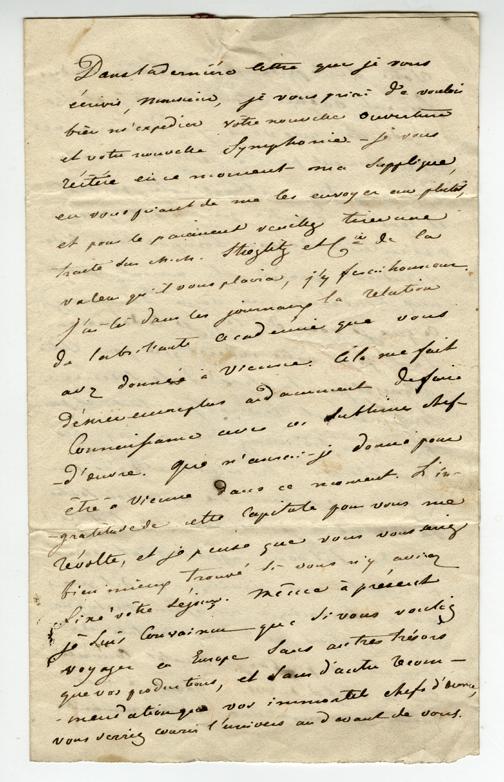 Dans la dernière lettre que je vous
écrivis, Monsieur, je vous priai de vouloir
bien m'expedier votre nouvelle ouverture
et votre nouvelle Symphonie – je vous
réitère en ce moment ma supplique,
en vous priant de me les envoyer au plutôt,
et pour le paiement veuillez tirer une
traite sur Mrs. Stieglitz et Cie de la
valeur qu'il vous plaira, j'y ferai honneur.
J'ai lû dans les journaux la relation
de la brillante académie que vous
avez donnée à Vienne. Cela me fait
désirer encore plus ardamment de faire
connoissance avec ces sublimes chef-
-d'œuvre. Que n'aurai-je donné pour
être à Vienne dans ce moment. L'in-
gratitude de cette capitale pour vous me
révolte, et je pense que vous vous seriez
bien mieux trouvé si vous n'y aviez
fixé vôtre séjour. Même à présent
je suis convaincu que si vous vouliez
voyager en Europe sans autres trésors
que vos productions, et sans d'autre recom-
-mandation que vos immortels chefs d'œuvre,
vous verriez courir l'univers au devant de vous.